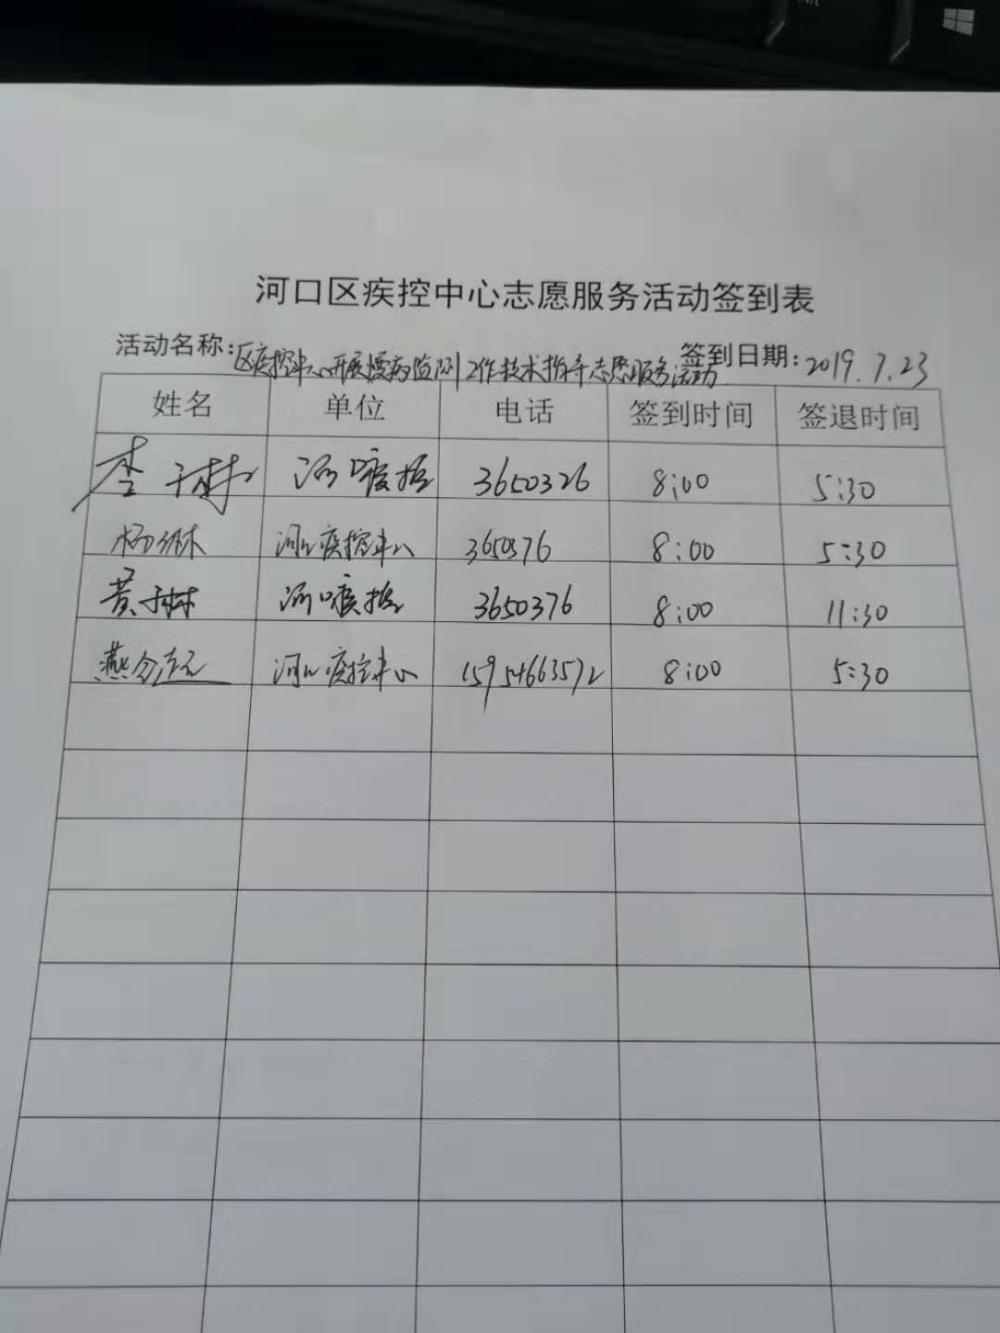 河口区疾控中心志愿服务活动签到表
活动名称:区疾控中心开展慢病监测工作技术指导志愿服务活动 签到日期:2019.7.23
姓名 单位 电话 签到时间 签退时间
李 河口疾控 3650326 8:00 5:30
杨琳 河口疾控中心 3650376 8:00 5:30
黄 河口疾控 3650376 8:00 11:30
燕 河口疾控中心 15954663572 8:00 5:30